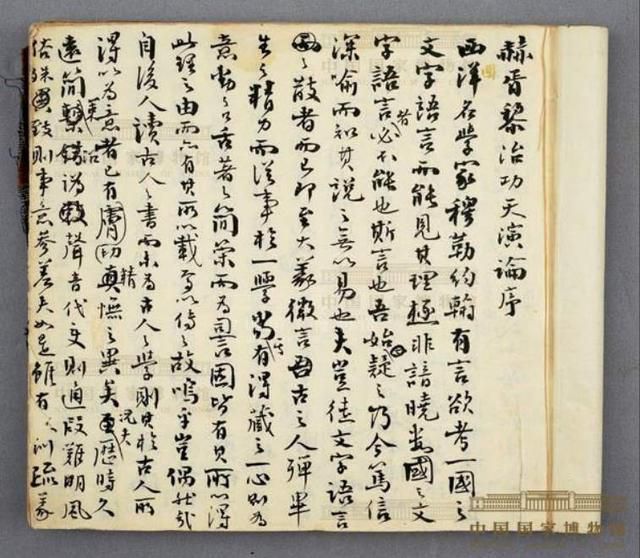 赫胥黎治功天演論序
西洋國名學家穆勒約翰有言欲考一國之
文字語言而能見其理極非諳曉數國之文
字語言者必不能也斯言也吾始疑之乃今篤信
深喻而知其說之無以易也夫豈徒文字語言
之散者而已即至大義微言古之人殫畢
生之精力而從事於一學當其有得藏之一心則為
意動之口舌著之簡策而為詞固皆有其所以得
此理之由而亦有其所以載焉以傳之故嗚乎豈偶然哉
自後人讀古人之書而未為古人之學則其於古人所
得以為意者已有膚切精憮之異矣況夫更歷時久
遠簡策沿錯訛聲音代變則通叚難明風
俗殊則事意參差夫如是雖有訓疏義
中国国家博物馆